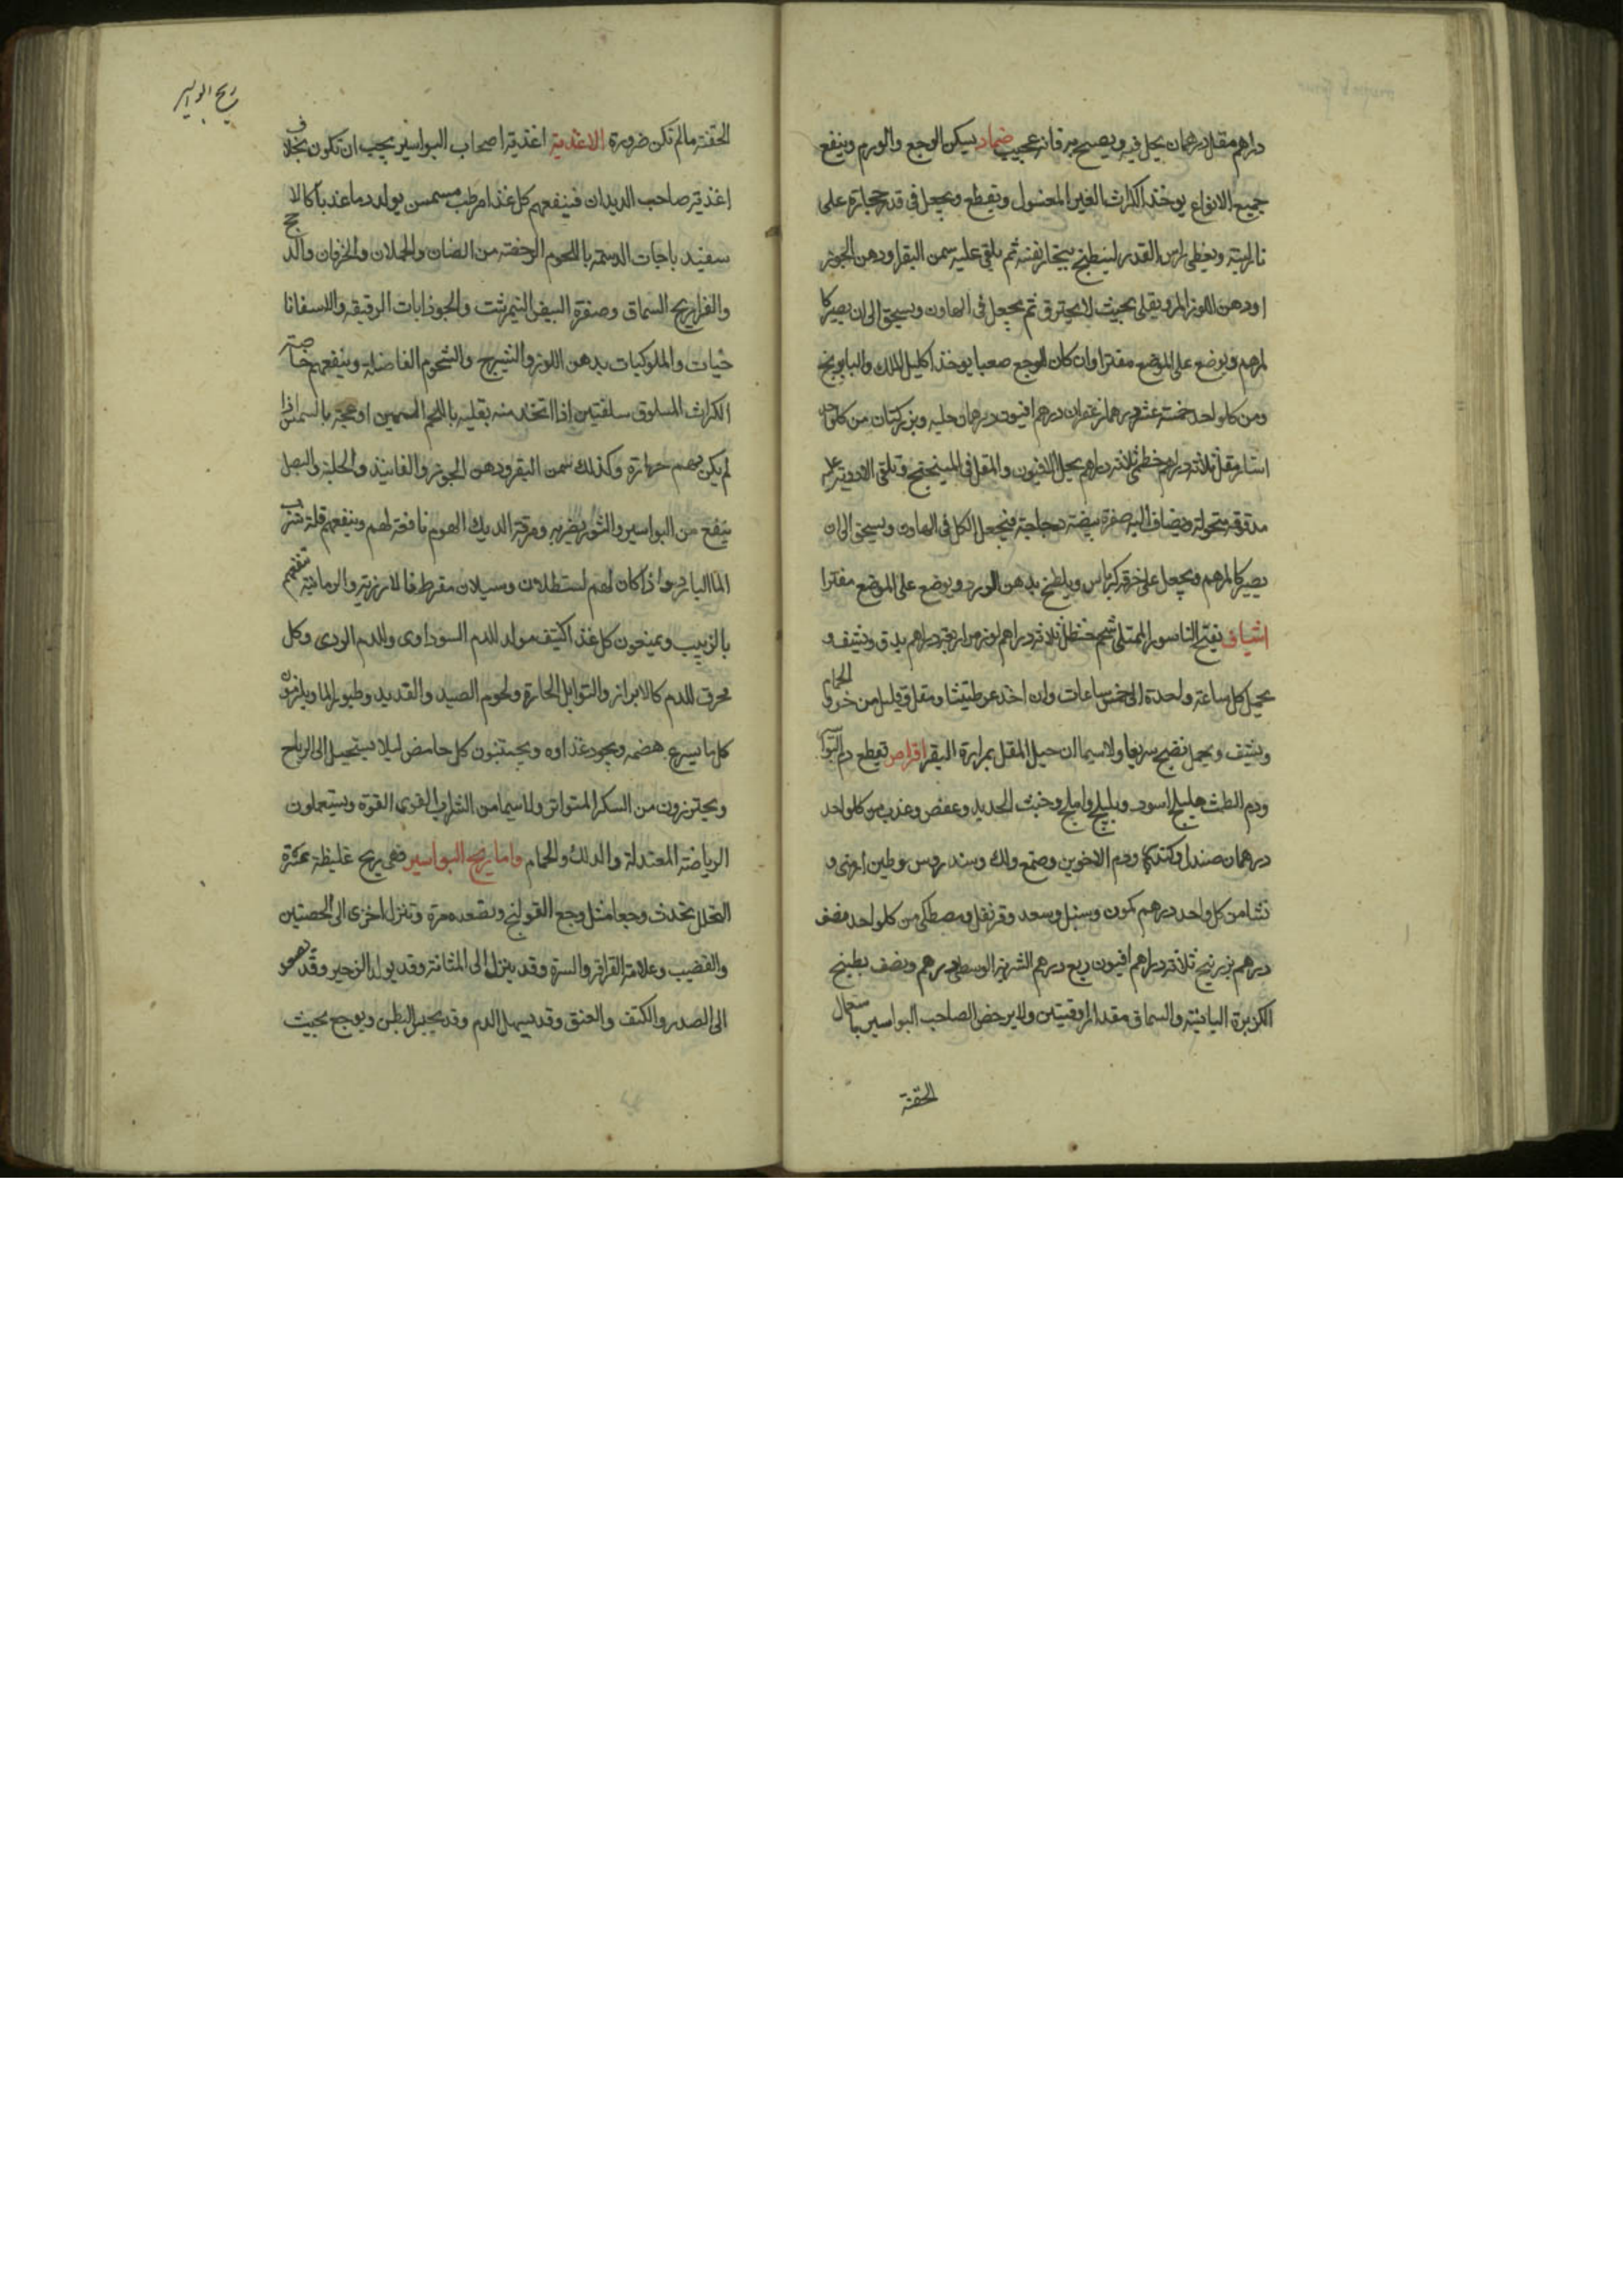 دراهم مقل درهمان يحل فيه ويصح به فانه عجيب ضماد يسكن الوجع والورم وينفع
جميع الانواع يوخذ الكراث الغير المغسول ويقطع ويجعل في قدر حجارة على
نار لينة ويغطى راس القدر لينطبخ ببخار نفسه ثم يلقى عليه سمن البقر ودهن الجوز
اودهن اللوز المر ويقلى بحيث لا يحترق ثم يجعل في الهاون ويسحق الى ان يصير كا
لمرهم ويوضع على الموضع مفترا وان كان الوجع صعبا يوخذ اكليل الملك والبابونج
ومن كلواحد خمسة عشر درهما زعفران درهم افيون درهمان حلبه وبزر كتان من كلواحد
استار مقل ثلاثة دراهم خطمى ثلاثة دراهم يحل الافيون والمقل في المبيختج وتلقى الادوية
مدقوقه منخولة ويضاف اليه صفرة بيضة دجاجة فيجعل الكل في الهاون ويسحق الى ان
يصير كالمرهم ويجعل على خرقة كرباس ويلطخ بدهن الورد ويوضع على الموضع مفترا
اشياف يفتح الناسور الممتلى شحم حنظل ثلاثة دراهم لوز مر اربعة دراهم يدق ويشيف و
يحمل كل ساعة واحدة الى خمس ساعات وان اخذ عرطنيثا ومقل وقليل من خرو الحمام
ويشيف ويحمل نضج سريعا ولاسيما ان حيل المقل بمرارة البقر اقراص تقطع دم البوا
ودم الطمث هليلج اسود وبليلج واملج وخبث الحديد وعفص وعذب من كلواحد
درهمان صندل وكندر ودم الاخوين وصمغ ولك وسندروس وطين ارمنى و
نشا من كل واحد درهم كمون وسنبل وسعد وقرنفل ومصطكى من كلواحد نصف
درهم بزر بنج ثلاثة دراهم افيون ربع درهم الشربة الوسطى درهم ونصف بطبيخ
الكزبرة اليابنية والسماق مقدار اوقيتين ولايرخض لصاحب البواسير باستعمال
الحقنة
ريح البواسير
الحقنة مالم تكن ضرورة الاغذية اغذية اصحاب البواسير يجب ان تكون بخلاف
اغذية صاحب الديدان فينفعهم كل غذا مرطب مسمن يولد دما عذبا كالا
سفيد باجات الدسمه باللحوم الرخصة من الضان والحملان والخرفان والدجج
والفراريج السماق وصفرة البيض النيمرشت والجوذابات الرقيقه والاسفانا
خيات والملوكيات بدهن اللوز والشيرج والشحوم الفاضلة وينفعهم خاصة
الكراث المسلوق سلقتين اذا اتخذ منه بقليه باللحم السمين او عجة بالسمن اذا
لم يكن بهم حرارة وكذلك سمن البقر ودهن الجوز والفانيذ والحلبة والبصل
ينفع من البواسير والثوم يضر به ومرقة الديك الهرم نافعة لهم وينفعهم قلة شرب
الما البارد واذا كان لهم استطلاق وسيلان مفرط فالارزية والرمانية تنفعهم
بالزبيب ويمنعون كل غذا كثيف مولد للدم السوداوى والدم الردى وكل
محرق للدم كالابزار والتوابل الحارة ولحوم الصيد والقديد وطيور الما ويلزمون
كل ما يسرع هضمه ويجود غذاوه ويجتنبون كل حامض ليلا يستحيل الى الرياح
ويحترزون من السكر المتواتر ولاسيما من الشراب القوى القوة ويستعملون
الرياضة المعتدلة والدلك والحمام واما ريح البواسير فهى ريح غليظة عسرة
التحلل تحدث وجعا مثل وجع القولنج ويصعد مرة وتنزل اخرى الى الخصيتين
والقضيب وعلامة القراقر والسرة وقد ينزل الى المثانة وقد يولد الزحير وقد يصعد
الى الصدر والكتف والعنق وقد يسهل الدم وقد يحبس البطن ويوجع بحيث